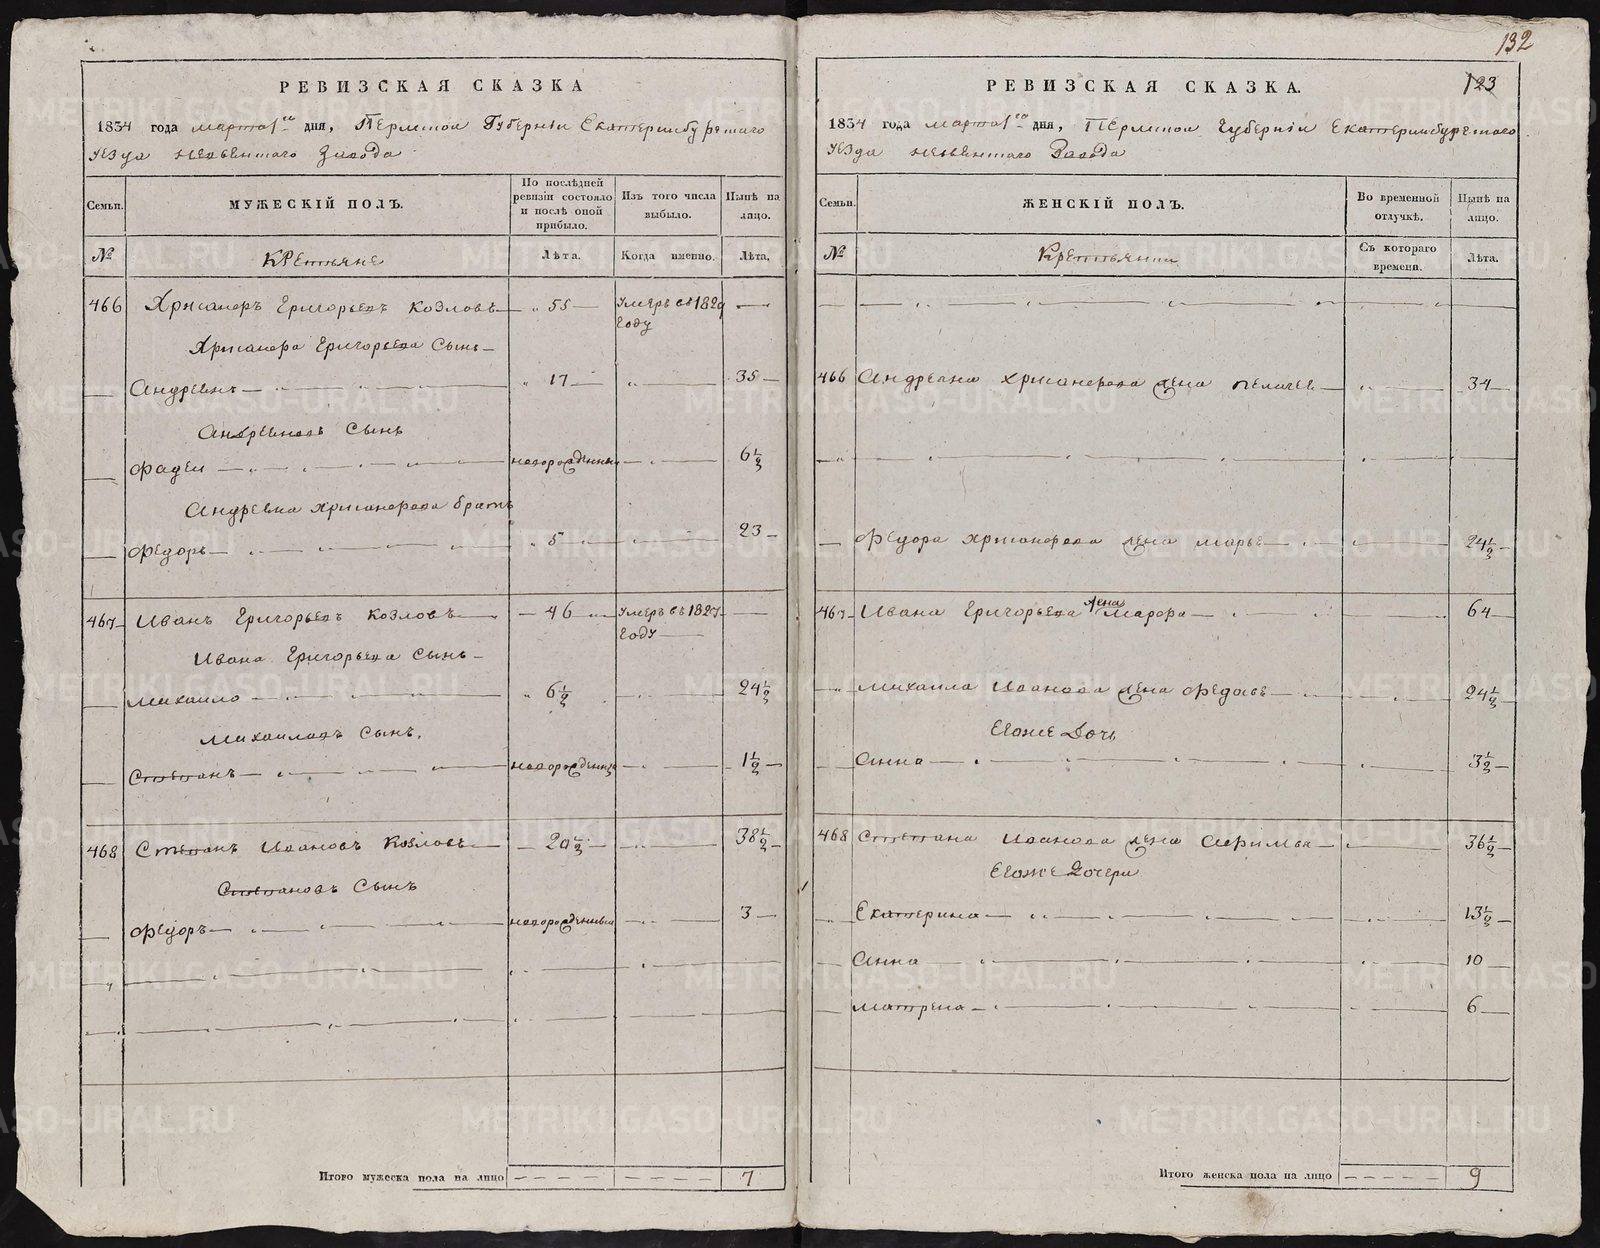 132
РЕВИЗСКАЯ СКАЗКА
1834 года марта 1го дня, Пермской Губернiи Екатеринбургского
уезда Невьянского Завода
Семьи.
МУЖЕСКIЙ ПОЛЪ.
По послѣдней ревизiи состояло и послѣ оной прибыло.
Изъ того числа выбыло.
Нынѣ на лицо.
№
Крестьяне
Лѣта.
Когда именно.
Лѣта.
466 Хрисанфъ Григорьевъ Козловъ 55 Умеръ въ 1829 году
Хрисанфа Григорьева сынъ
Андреянъ 17 35
Андреяновъ сынъ
Фадеи новорожденныи 6½
Андреяна Хрисанфова братъ
Федоръ 5 23
467 Иванъ Григорьевъ Козловъ 46 Умеръ въ 1827 году
Ивана Григорьева сынъ
Михаило 6½ 24½
Михаиловъ сынъ
Степанъ новорожденны 1½
468 Степанъ Ивановъ Козловъ 20½ 38½
Степановъ сынъ
Федоръ новорожденныи 3
Итого мужеска пола на лицо 7
РЕВИЗСКАЯ СКАЗКА.
123
1834 года марта 1го дня, Пермской Губернiи Екатеринбургского
уезда Невьянского Завода
Семьи.
ЖЕНСКIЙ ПОЛЪ.
Во временной отлучкѣ.
Нынѣ на лицо.
№
Крестьянки
Съ котораго времени.
Лѣта.
466 Андреяна Хрисанфова жена Пелагея 34
Федора Хрисанфова жена Марья 24½
467 Ивана Григорьева жена Марфа 64
Михаила Иванова жена Федосья 24½
Егоже дочь
Анна 3½
468 Степана Иванова жена 36½
Егоже дочери
Екатерина 13½
Анна 10
Матрена 6
Итого женска пола на лицо 9
METRIKI.GASO-URAL.RU